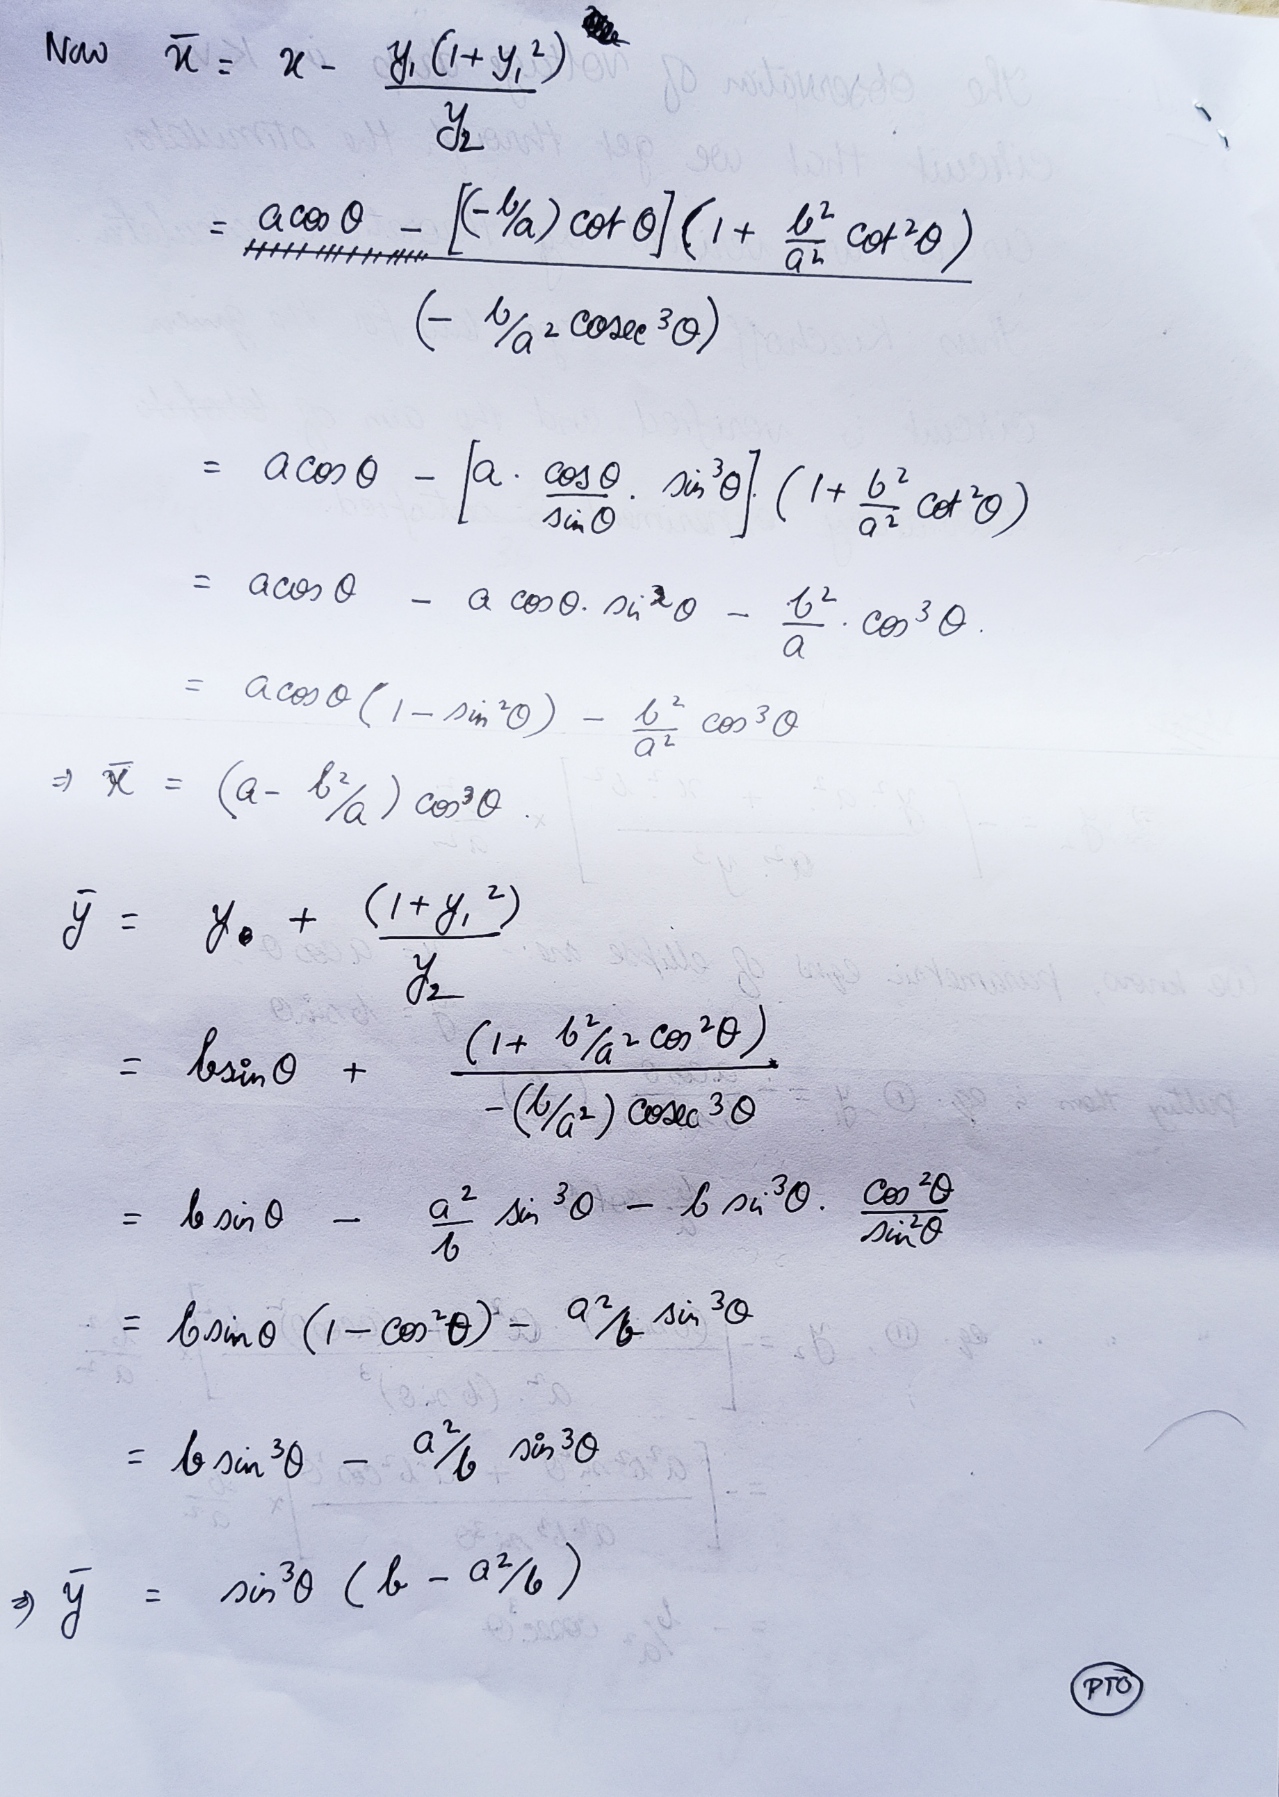 Now x̄ = x - y₁(1+y₁²)/y₂
= acosθ - [(-b/a) cotθ](1+ b²/a² cot²θ)/(- b/a² cosec³θ)
= acosθ - [a. cosθ/sinθ. sin³θ]. (1+ b²/a² cot²θ)
= acosθ - a cosθ. sin²θ - b²/a . cos³θ.
= acosθ(1-sin²θ) - b²/a² cos³θ
⇒ x̄ = (a- b²/a) cos³θ.
ȳ = y + (1+y₁²)/y₂
= bsinθ + (1+ b²/a² cos²θ)/-(b/a²) cosec³θ
= bsinθ - a²/b sin³θ - b sin³θ. cos²θ/sin²θ
= bsinθ (1-cos²θ) - a²/b sin³θ
= bsin³θ - a²/b sin³θ
⇒ ȳ = sin³θ (b - a²/b)
PTO